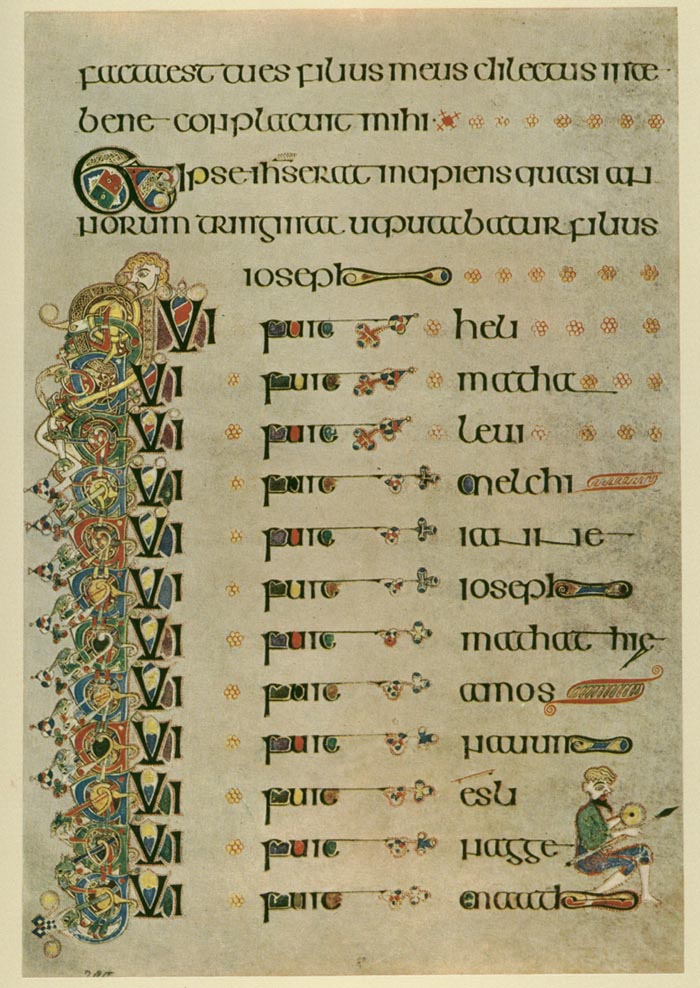 factaest tues filius meus dilectus inte
bene conplacuit mihi
Et ipse ihs erat incipiens quasi an
norum tringinta ut putabatur filius
ioseph
QVI fuit heli
QVI fuit matha
QVI fuit leui
QVI fuit melchi
QVI fuit ianne
QVI fuit ioseph
QVI fuit mathathie
QVI fuit amos
QVI fuit nauum
QVI fuit esli
QVI fuit nagge
QVI fuit maath